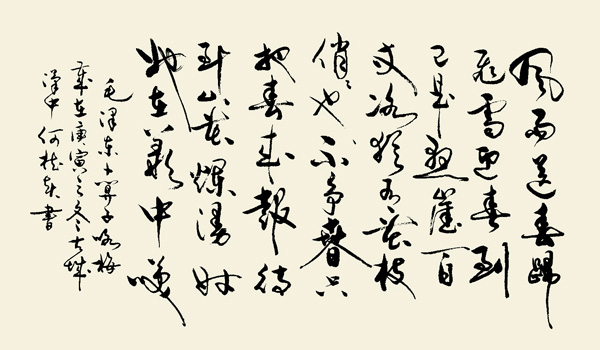 風雨送春歸
飛雪迎春到
已是懸崖百
丈冰猶有花枝
俏〻也不争春只
把春来報待
到山花爛漫时
她在叢中笑
毛澤东卜算子咏梅
歲在庚寅之冬古城
漢中何桂书